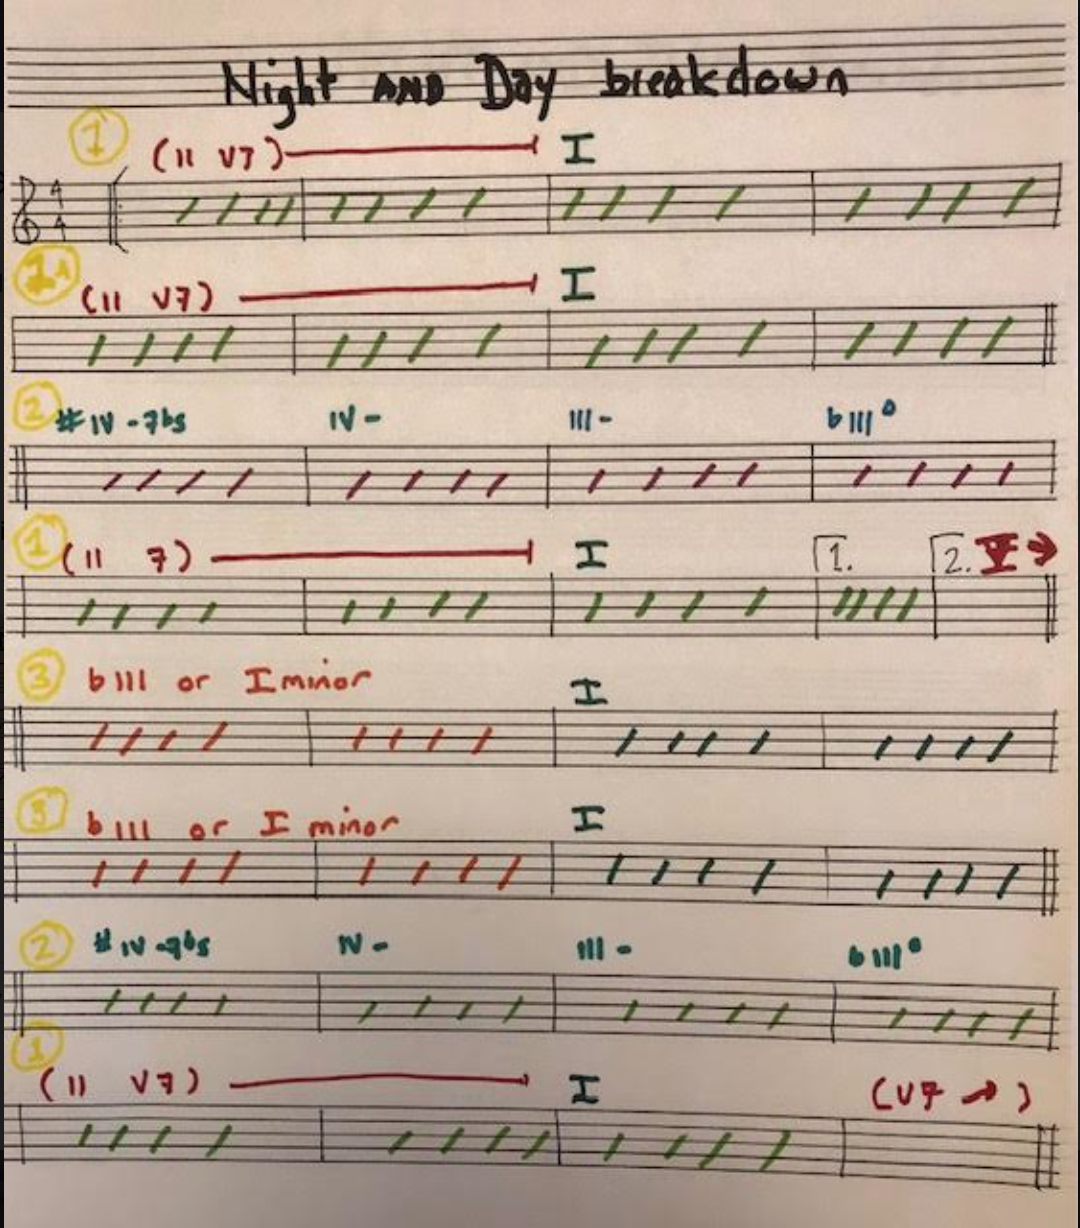 Night AND Day breakdown
1 (II V7) I
4
4
1A (II V7) I
2 #IV-7b5 IV- III- bIII°
1 (II 7) I 1. 2. V →
3 bIII or I minor I
3 bIII or I minor I
2 #IV-7b5 IV- III- bIII°
1
(II V7) I (V7 → )